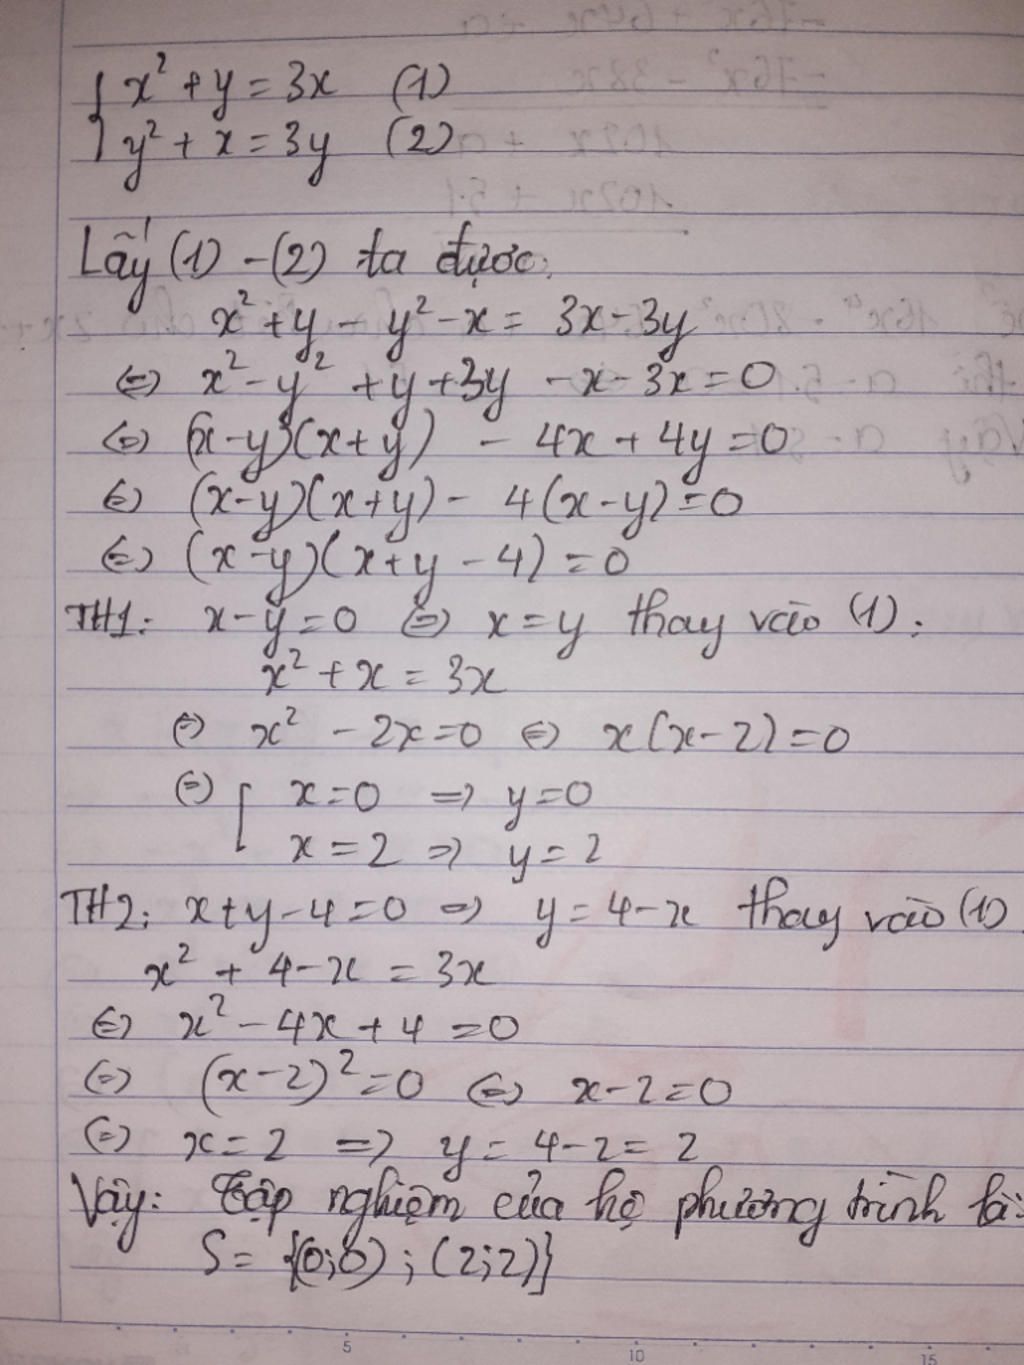 { x² + y = 3x (1)
y² + x = 3y (2)
Lấy (1) - (2) ta được:
x² + y - y² - x = 3x - 3y
⇔ x² - y² + y + 3y - x - 3x = 0
⇔ (x - y)(x + y) - 4x + 4y = 0
⇔ (x - y)(x + y) - 4(x - y) = 0
⇔ (x - y)(x + y - 4) = 0
TH1: x - y = 0 ⇔ x = y thay vào (1):
x² + x = 3x
⇔ x² - 2x = 0 ⇔ x(x - 2) = 0
⇔ [ x = 0 => y = 0
x = 2 => y = 2
TH2: x + y - 4 = 0 => y = 4 - x thay vào (1)
x² + 4 - x = 3x
⇔ x² - 4x + 4 = 0
⇔ (x - 2)² = 0 ⇔ x - 2 = 0
⇔ x = 2 => y = 4 - 2 = 2
Vậy: Tập nghiệm của hệ phương trình là:
S = {(0;0) ; (2;2)}
5 10 15